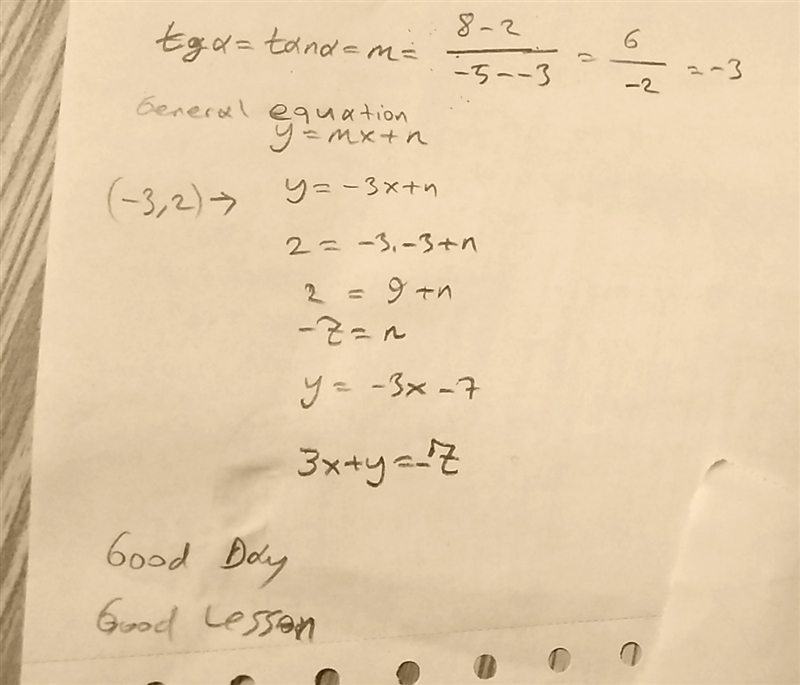 tgα = tanα = m = 8-2 / -5--3 = 6 / -2 = -3
General equation
y = mx+n
(-3,2) → y = -3x+n
2 = -3.-3+n
2 = 9+n
-7 = n
y = -3x-7
3x+y = -7
Good Day
Good Lesson